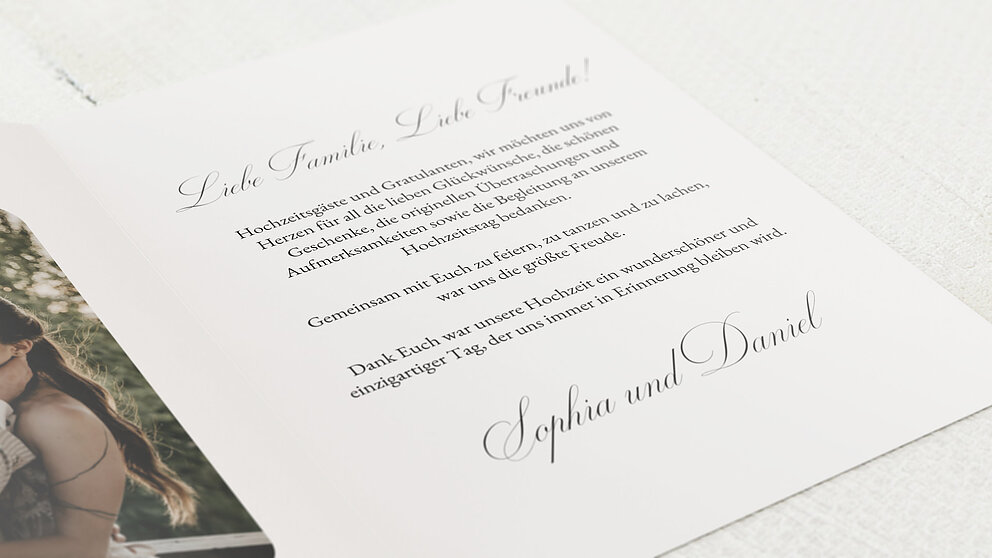 Liebe Familie, Liebe Freunde!
Hochzeitsgäste und Gratulanten, wir möchten uns von
Herzen für all die lieben Glückwünsche, die schönen
Geschenke, die originellen Überraschungen und
Aufmerksamkeiten sowie die Begleitung an unserem
Hochzeitstag bedanken.
Gemeinsam mit Euch zu feiern, zu tanzen und zu lachen,
war uns die größte Freude.
Dank Euch war unsere Hochzeit ein wunderschöner und
einzigartiger Tag, der uns immer in Erinnerung bleiben wird.
Sophia und Daniel